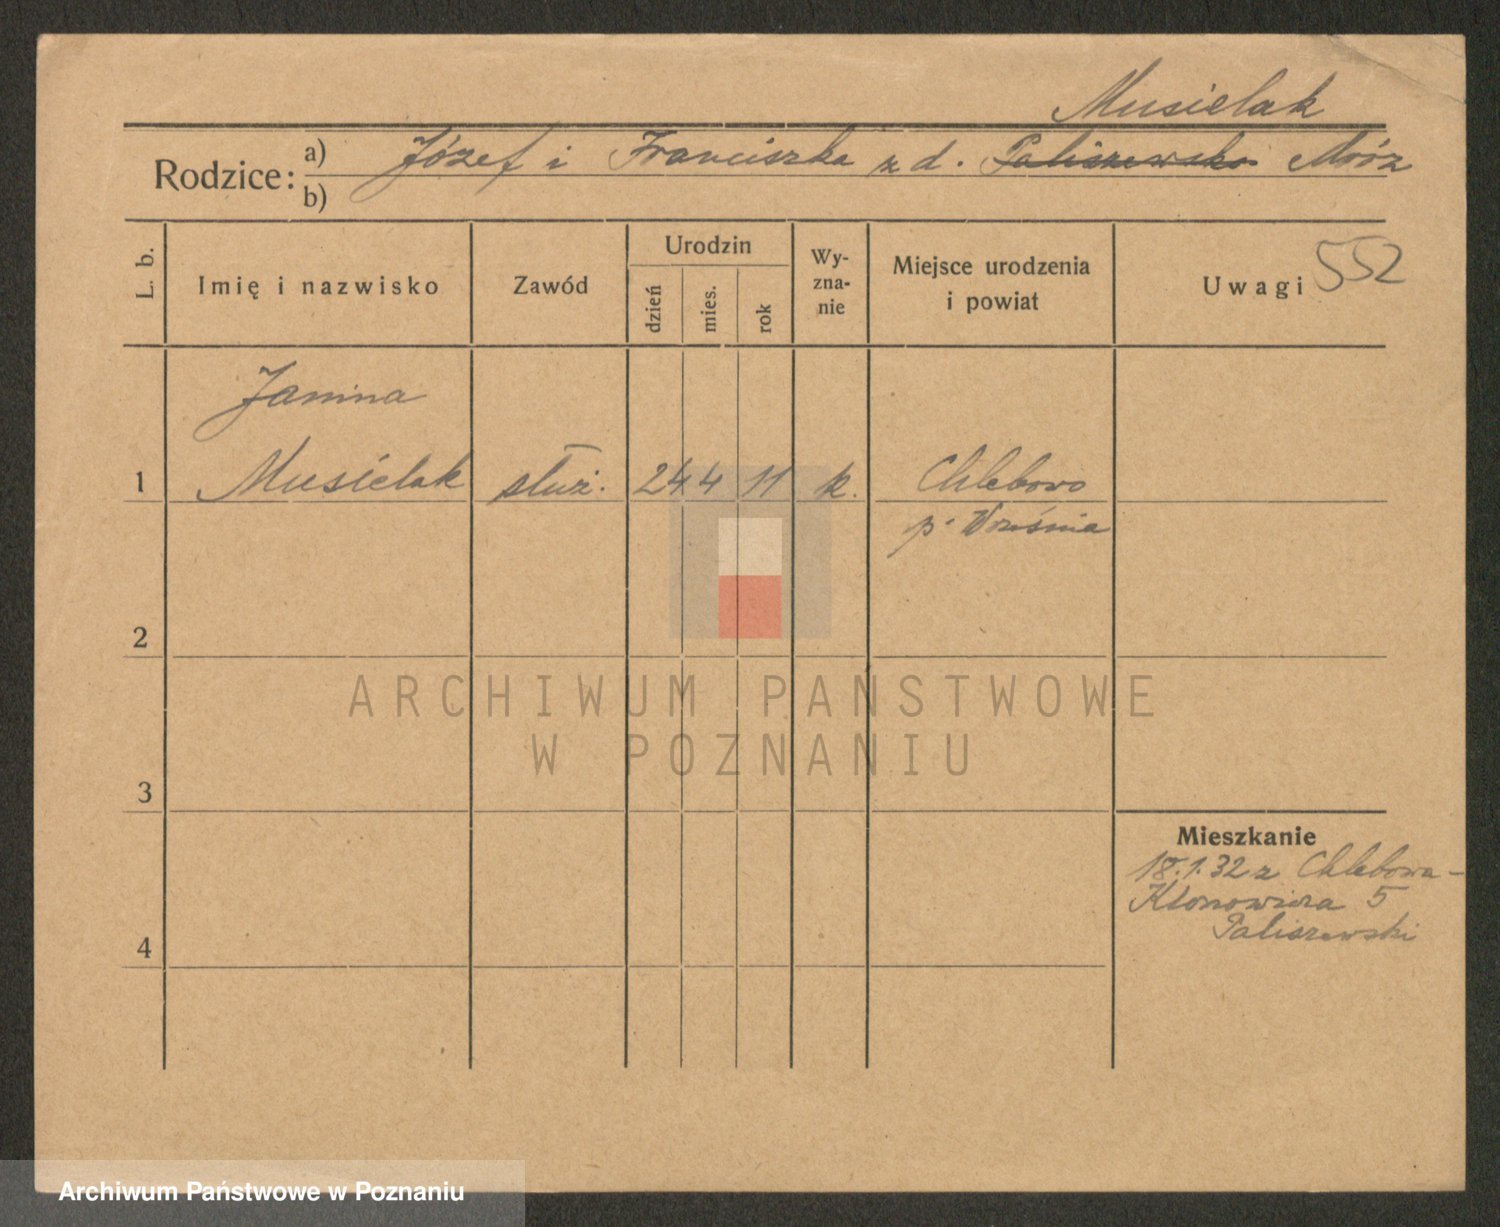 Musielak
Rodzice: a) Józef i Franciszka z d. Paliszewska Mróz
b)
L. b.
Imię i nazwisko
Zawód
Urodzin
dzień
mies.
rok
Wy-
zna-
nie
Miejsce urodzenia
i powiat
Uwagi 552
Janina
1 Musielak służ. 24 4 11 k. Chlebowo
p. Września
2
ARCHIWUM PAŃSTWOWE
W POZNANIU
3
Mieszkanie
18.1.32 z Chlebowa-
Klonowicza 5
Paliszewski
4
Archiwum Państwowe w Poznaniu